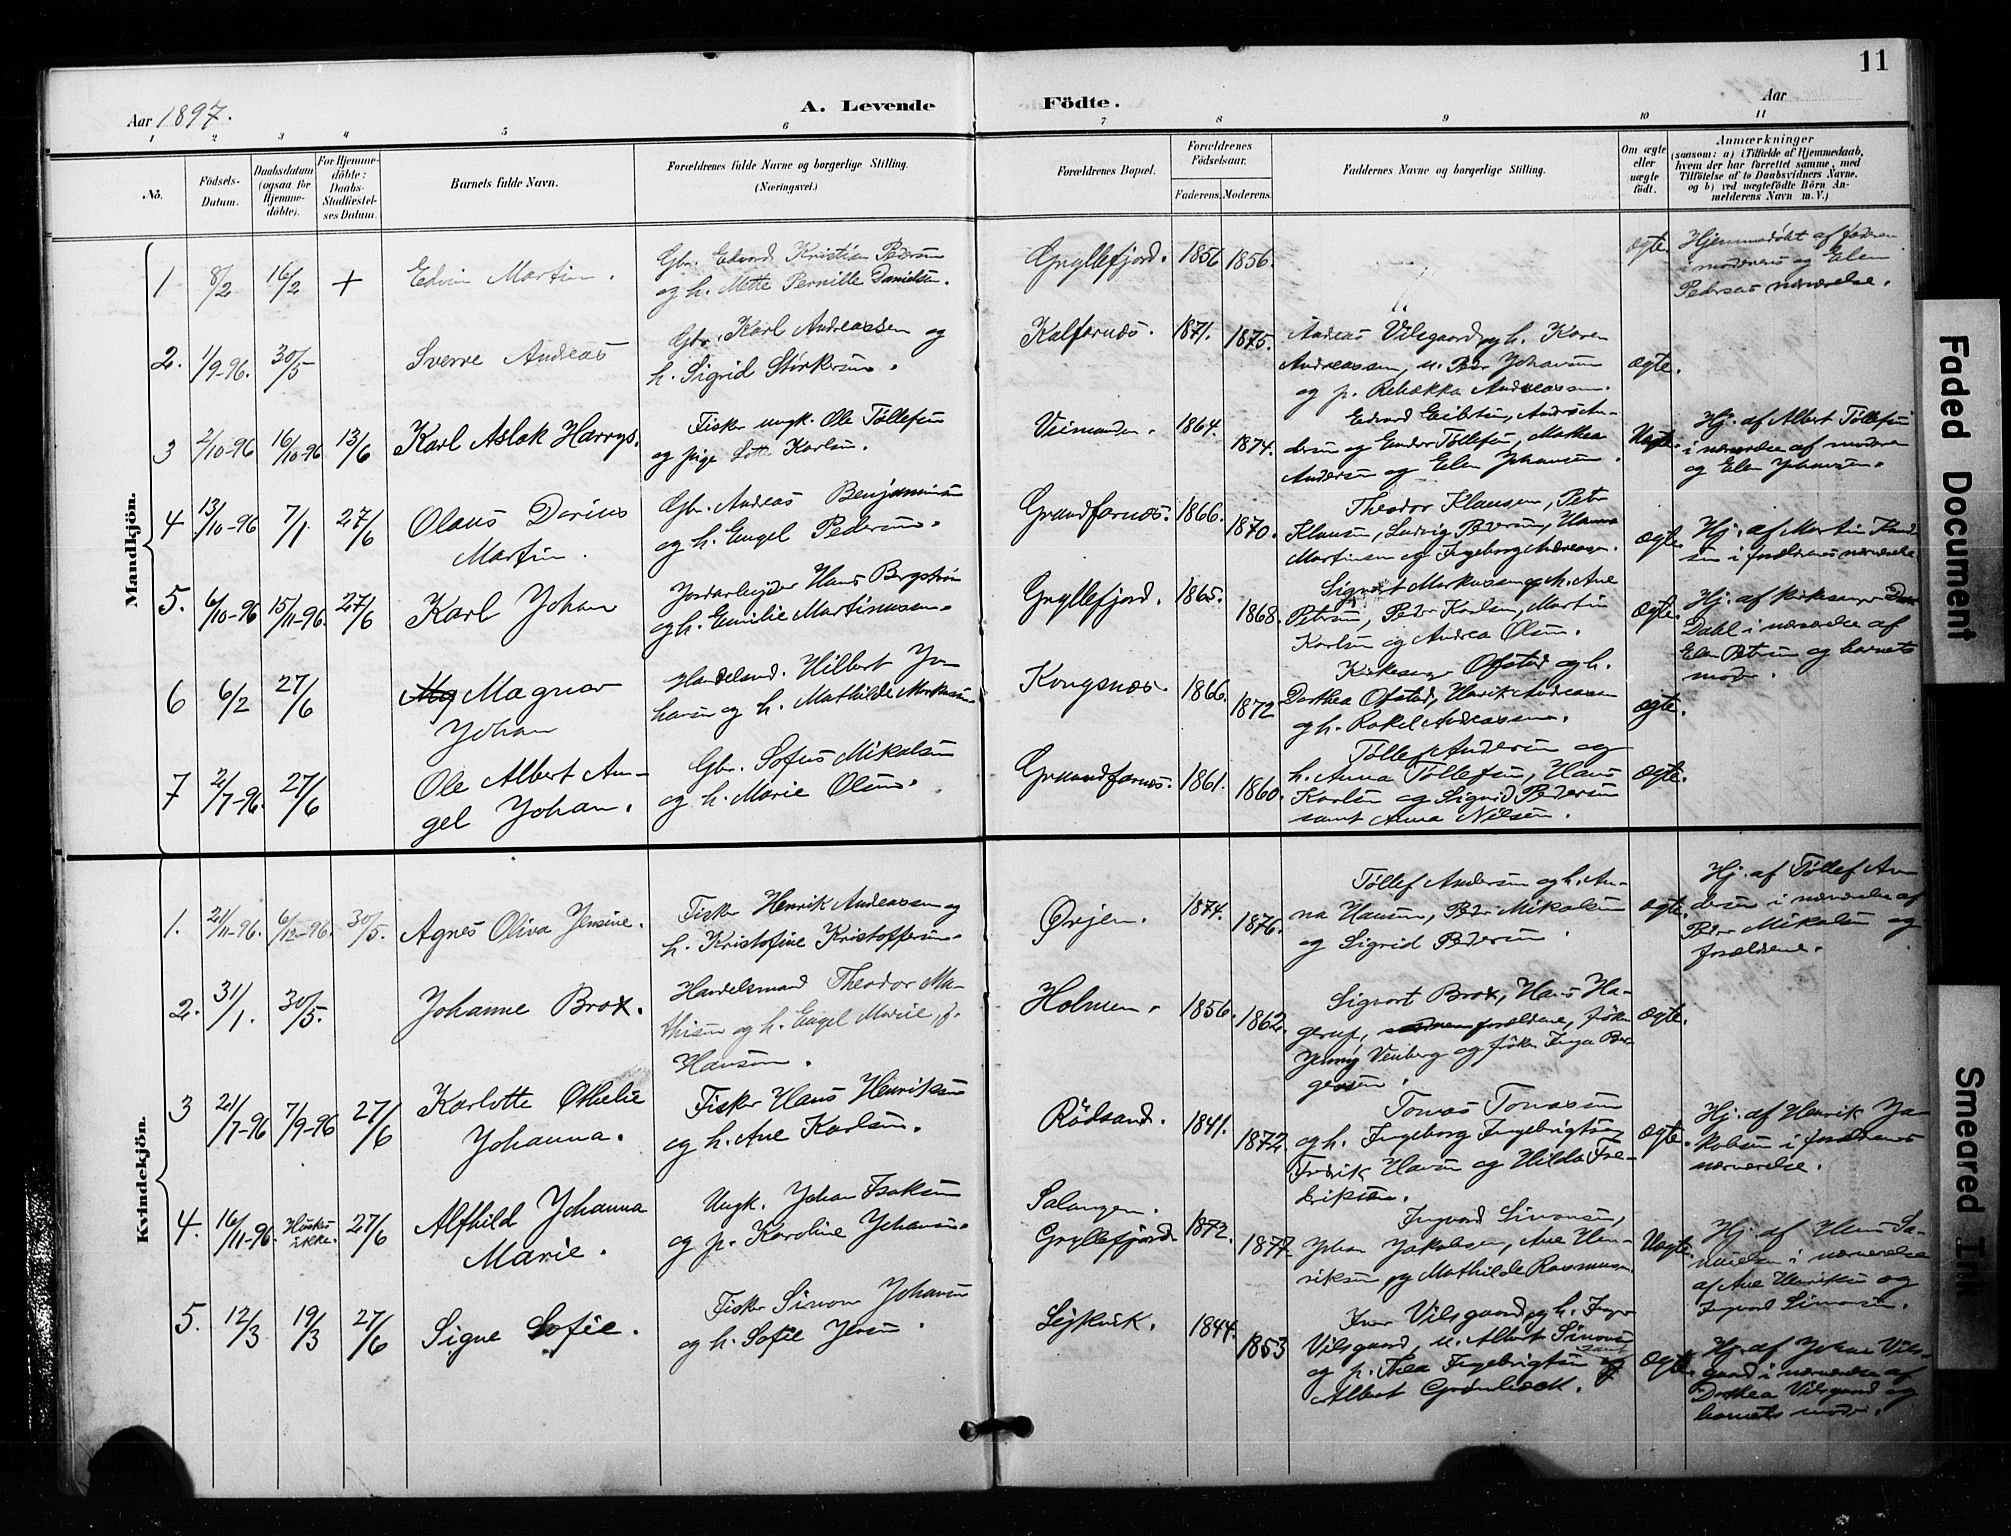 11
Aar 1897. A. Levende Födte. Aar
1 2 3 4 5 6 7 8 9 10 11
No. Födsels-Datum. Daabsdatum (ogsaa for Hjemme-döbte). For Hjemme-döbte: Daabs-Stadfæstel-ses Datum. Barnets fulde Navn. Forældrenes fulde Navne og borgerlige Stilling. (Næringsvei.) Forældrenes Bopæl. Forældrenes Födselsaar. Faderens. Moderens. Faddernes Navne og borgerlige Stilling. Om ægte eller uægte födt. Anmærkninger (saasom: a) i Tilfælde af Hjemmedaab, hvem der har forrettet samme, med Tilföielse af to Daabsvidners Navne, og b) ved uægtefödte Börn An-melderens Navn m. V.)
Mandkjön.
1 8/2 16/2 + Edvin Martin. Gbr. Edvard Kristian Pedersen
og h. Mette Pernille Danielsen. Gryllefjord. 1856 1856. ægte. Hjemmedøbt af faderen
i moderens og Elen
Pedersens nærværelse.
2. 1/9-96. 30/5 Sverre Andreas Gbr. Karl Andreassen og
h. Sigrid Störkersen. Kalfarnæs. 1871. 1875. Andreas Vilsgaard og h. Karen
Andreassen, u. Peder Johansen
og p. Rebækka Andreassen. ægte.
3 2/10-96 16/10-96 13/6 Karl Aslak Harrys. Fisker ungk. Ole Tøllefsen
og pige Lotte Karlsen. 1864. 1874. Edvard Eilertsen, Andrea An-
dersen og Tøllefsen, Mathea
Andersen og Elen Johansen. Uægte. Hj. af Albert Tøllefsen
i nærværelse af moderen
og Elen Johansen.
4 13/10-96 7/1 27/6 Olaus Darius
Martin. Gbr. Andreas Benjaminsen
og h. Engel Pedersen. Grundfarnæs. 1866. 1870. Theodor Klausen, Peter
Klausen, Ludvig Pedersen, Hanna
Martinsen og Ingeborg Andreasen. ægte. Hj. af Martin
sen i forældrenes nærværelse
5. 6/10-96 15/11-96. 27/6 Karl Johan Jordarbejder Hans Bergström
og h. Emilie Martinussen. Gryllefjord. 1865. 1868. Sigvart Markussen og h. Ane
Petersen, Peder Karlsen, Martin
Karlsen og Andrea Olsen. ægte. Hj. af kirkesanger
Dahl i nærværelse af
Elen Petersen og barnets
moder.
6 6/2 27/6 Magnar
Johan Handelsmd. Hilbert Jo-
hansen og h. Mathilde Markussen Kongsnæs. 1866. 1872 Kirkesanger Ofstad og h.
Dorthea Ofstad, Henrik Andreassen
og h. Rakel Andreassen. ægte.
7 2/7-96. 27/6 Ole Albert An-
gel Johan. Gbr. Sofus Mikalsen
og h. Marie Olsen. Grundfarnæs. 1861. 1860. Tøllef Andersen og
h. Anna Tøllefsen, Hans
Karlsen og Sigrid Pedersen
samt Anna Nilsen. ægte.
Kvindekjön.
1. 21/11-96. 6/12-96. 30/5. Agnes Oliva Jensine. Fisker Henrik Andreassen og
h. Kristofine Kristoffersen. Ørjen. 1874. 1876. Tøllef Andersen og h. An-
na Hansen, Peder Mikalsen
og Sigrid Pedersen. ægte. Hj. af Tøllef An-
dersen i nærværelse af
Peder Mikalsen og
forældrene.
2. 31/1. 30/5. Johanne Brox. Handelsmand Theodor Ma-
thisen og h. Engel Marie, f.
Hansen. Holmen. 1856. 1862. Sigvart Brox, Hans Ha-
gerup, forældrene, frøken
Jenny Veiberg og frøken Inga Ber-
gersen. ægte.
3 21/7-96 7/9-96 27/6 Karlotte Othelie
Johanna. Fisker Hans Henriksen
og h. Ane Karlsen. Rödsand. 1841. 1872. Tomas Tomassen
og h. Ingeborg Ingebrigtsen,
Fredrik Hansen og Hilda Fre-
driksen. ægte. Hj. af Henrik Ja-
kobsen i forældrenes
nærværelse.
4. 16/11-96. Huskes
ikke. 27/6 Alfhild Johanna
Marie. Ungk. Johan Isaksen
og p. Karoline Johansen. Salangen.
Gryllefjord. 1873. 1877 Ingvard Simonsen,
Johan Jakobsen, Ane Hen-
riksen og Mathilde Rasmussen. Uægte. Hj. af Hans Da-
nielsen i nærværelse
af Ane Henriksen og
Ingvard Simonsen.
5. 12/3 19/3 27/6 Signe Sofie. Fisker Simon Johansen
og h. Sofie Jensen. 1844. 1853 Iver Vilsgaard og h. Inger
Vilsgaard, u. Albert Simonsen
og p. Thea Ingebrigtsen samt
Albert Grønbæck. Ægte. Hj. af Johan Vils-
gaard i nærværelse af
Dorthea Vilsgaard og
barnets moder.
Faded Document
Smeared Ink